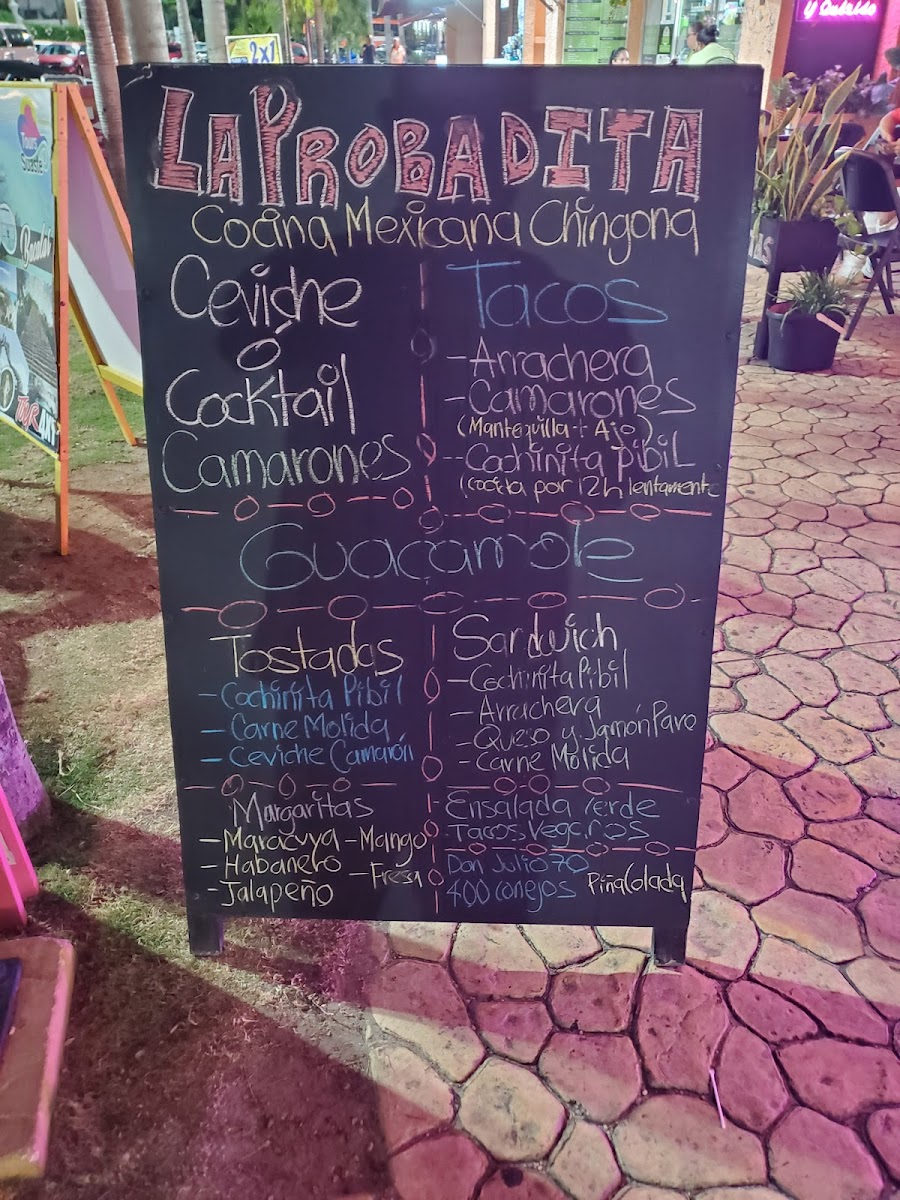 LA PROBADITA
Cocina Mexicana Chingona
Ceviche
ó
Cocktail
Camarones
Tacos
- Arrachera
- Camarones
(Mantequilla + Ajo)
- Cochinita Pibil
(Cocida por 12h lentamente
Guacamole
Tostadas
- Cochinita Pibil
- Carne Molida
- Ceviche Camarón
Sandwich
- Cochinita Pibil
- Arrachera
- Queso y Jamón Pavo
- Carne Molida
Margaritas
- Maracuya - Mango
- Habanero - Fresa
- Jalapeño
Ensalada Verde
Tacos Veganos
Don Julio 70
400 conejos Piña Colada
Tours
Sureste
Bacalar
2x1
y Outside